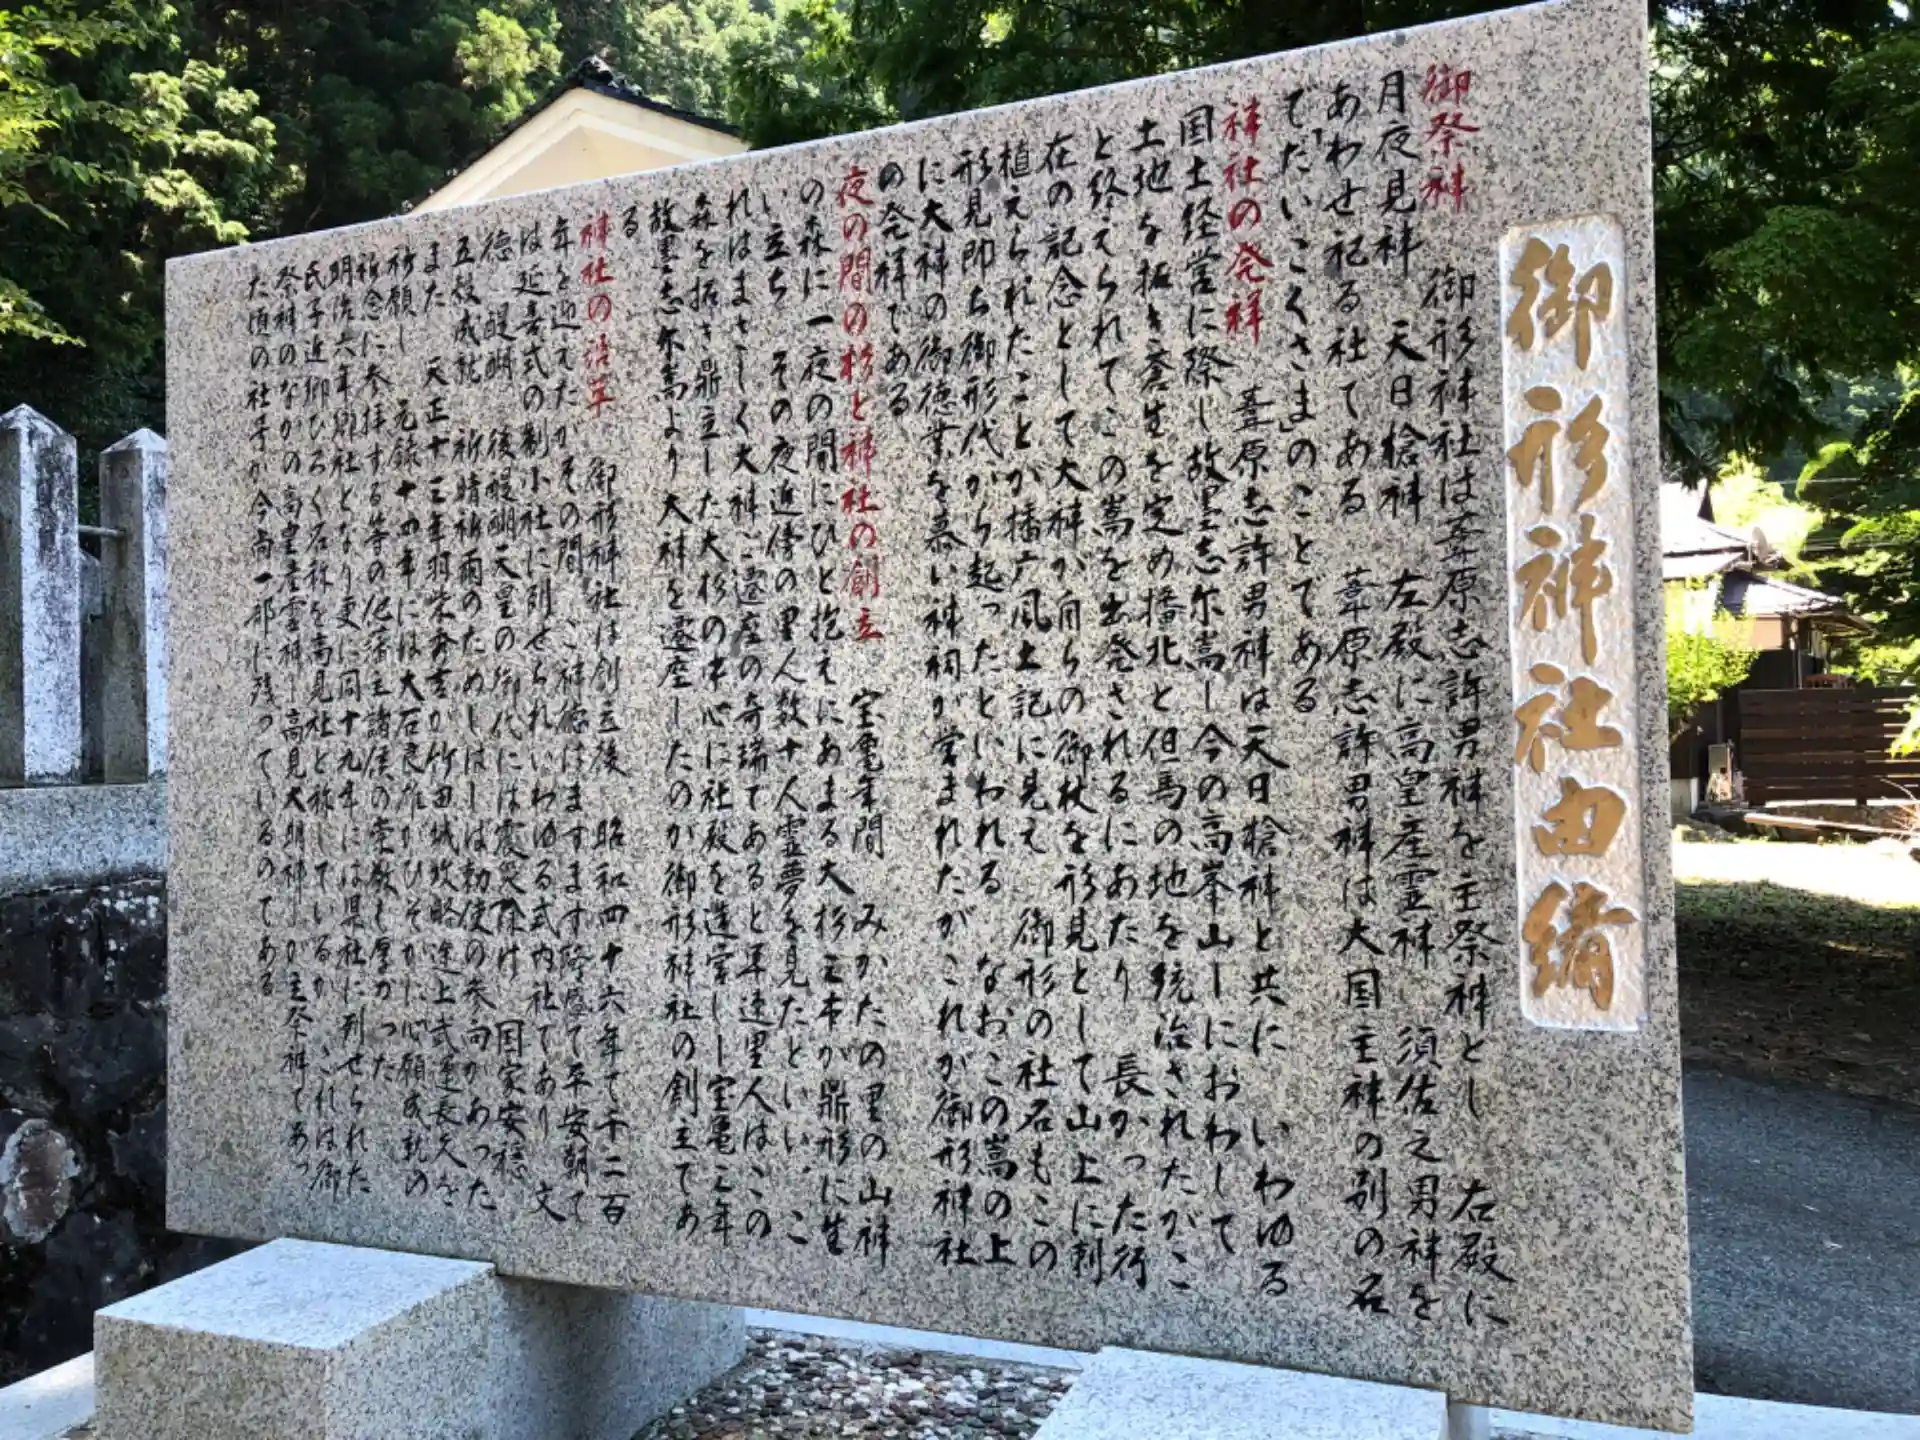 御形神社由緒
御祭神　御形神社は葦原志許男神を主祭神とし　右殿に
月夜見神　天日槍神　左殿に高皇産霊神　須佐之男神を
あわせ祀る社である　葦原志許男神は大国主神の別の名
で「だいこくさま」のことである
神社の発祥　葦原志許男神は天日槍神と共に　いわゆる
国土経営に際し故里志尓嵩ー今の高峯山ーにおわして
土地を拓き蒼生を定め播北と但馬の地を統治されたがこ
と終えられてこの嵩を出発されるにあたり　長かった行
在の記念として大神が自らの御杖を形見として山上に刺
植えられたことが播广風土記に見え　御形の社名もこの
形見即ち御形代から起ったといわれる　なおこの嵩の上
に大神の御徳業を慕い神祠が営まれたがこれが御形神社
の発祥である
夜の間の杉と神社の創立　宝亀年間　みかたの里の山神
の森に一夜の間にひと抱えにあまる大杉三本が鼎形に生
い立ち　その夜近傍の里人数十人霊夢を見たといい、こ
れはまさしく大神ご遷座の奇瑞であると早速里人はこの
森を拓き鼎立した大杉の中心に社殿を造営しー宝亀三年
故里志尓嵩より大神を遷座したのが御形神社の創立であ
る
神社の沿革　御形神社は創立後　昭和四十六年で千二百
年を迎えたがその間　ご神徳はますます隆盛で平安朝で
は延喜式の制小社に列せられいわゆる式内社であり　文
徳　醍醐　後醍醐天皇の御代には震災除け　国家安穏
五穀成就　祈晴祈雨のためしばしば勅使の参向があった
また　天正十三年羽柴秀吉が竹田城攻略途上武運長久を
祈願し　元録十四年には大石良雄がひそかに心願成就の
祈念に参拝する等の他藩主諸侯の崇敬も厚かった
明治六年郷社となり更に同十九年には県社に列せられた
氏子近郷ひろく名称を高見社と称しているが　これは御
祭神のなかの高皇産霊神ー高見大明神ーが主祭神であっ
た頃の社号が今尚一部に残っているのである